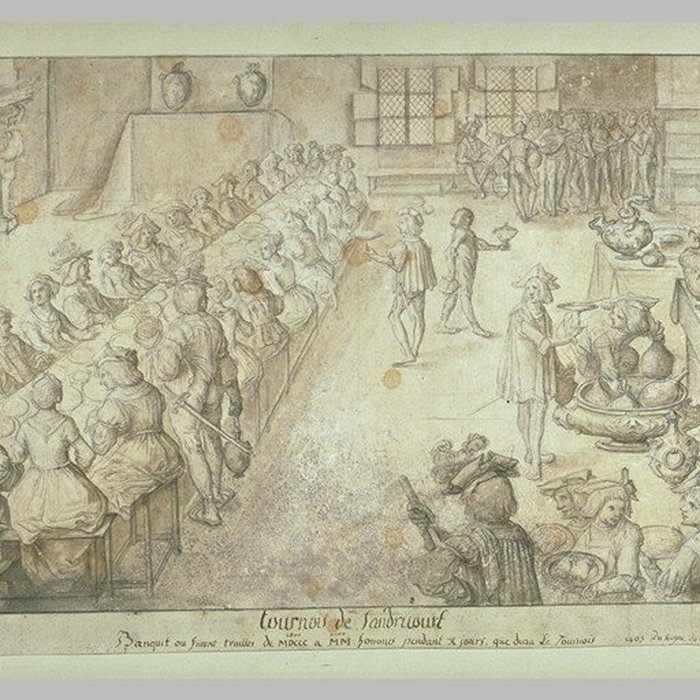 tournois de Sandricourt
Banquit ou furent traittes de MDCCC a MM hommes pendant X jours, que dura Le Tournois 1493 Du Regne